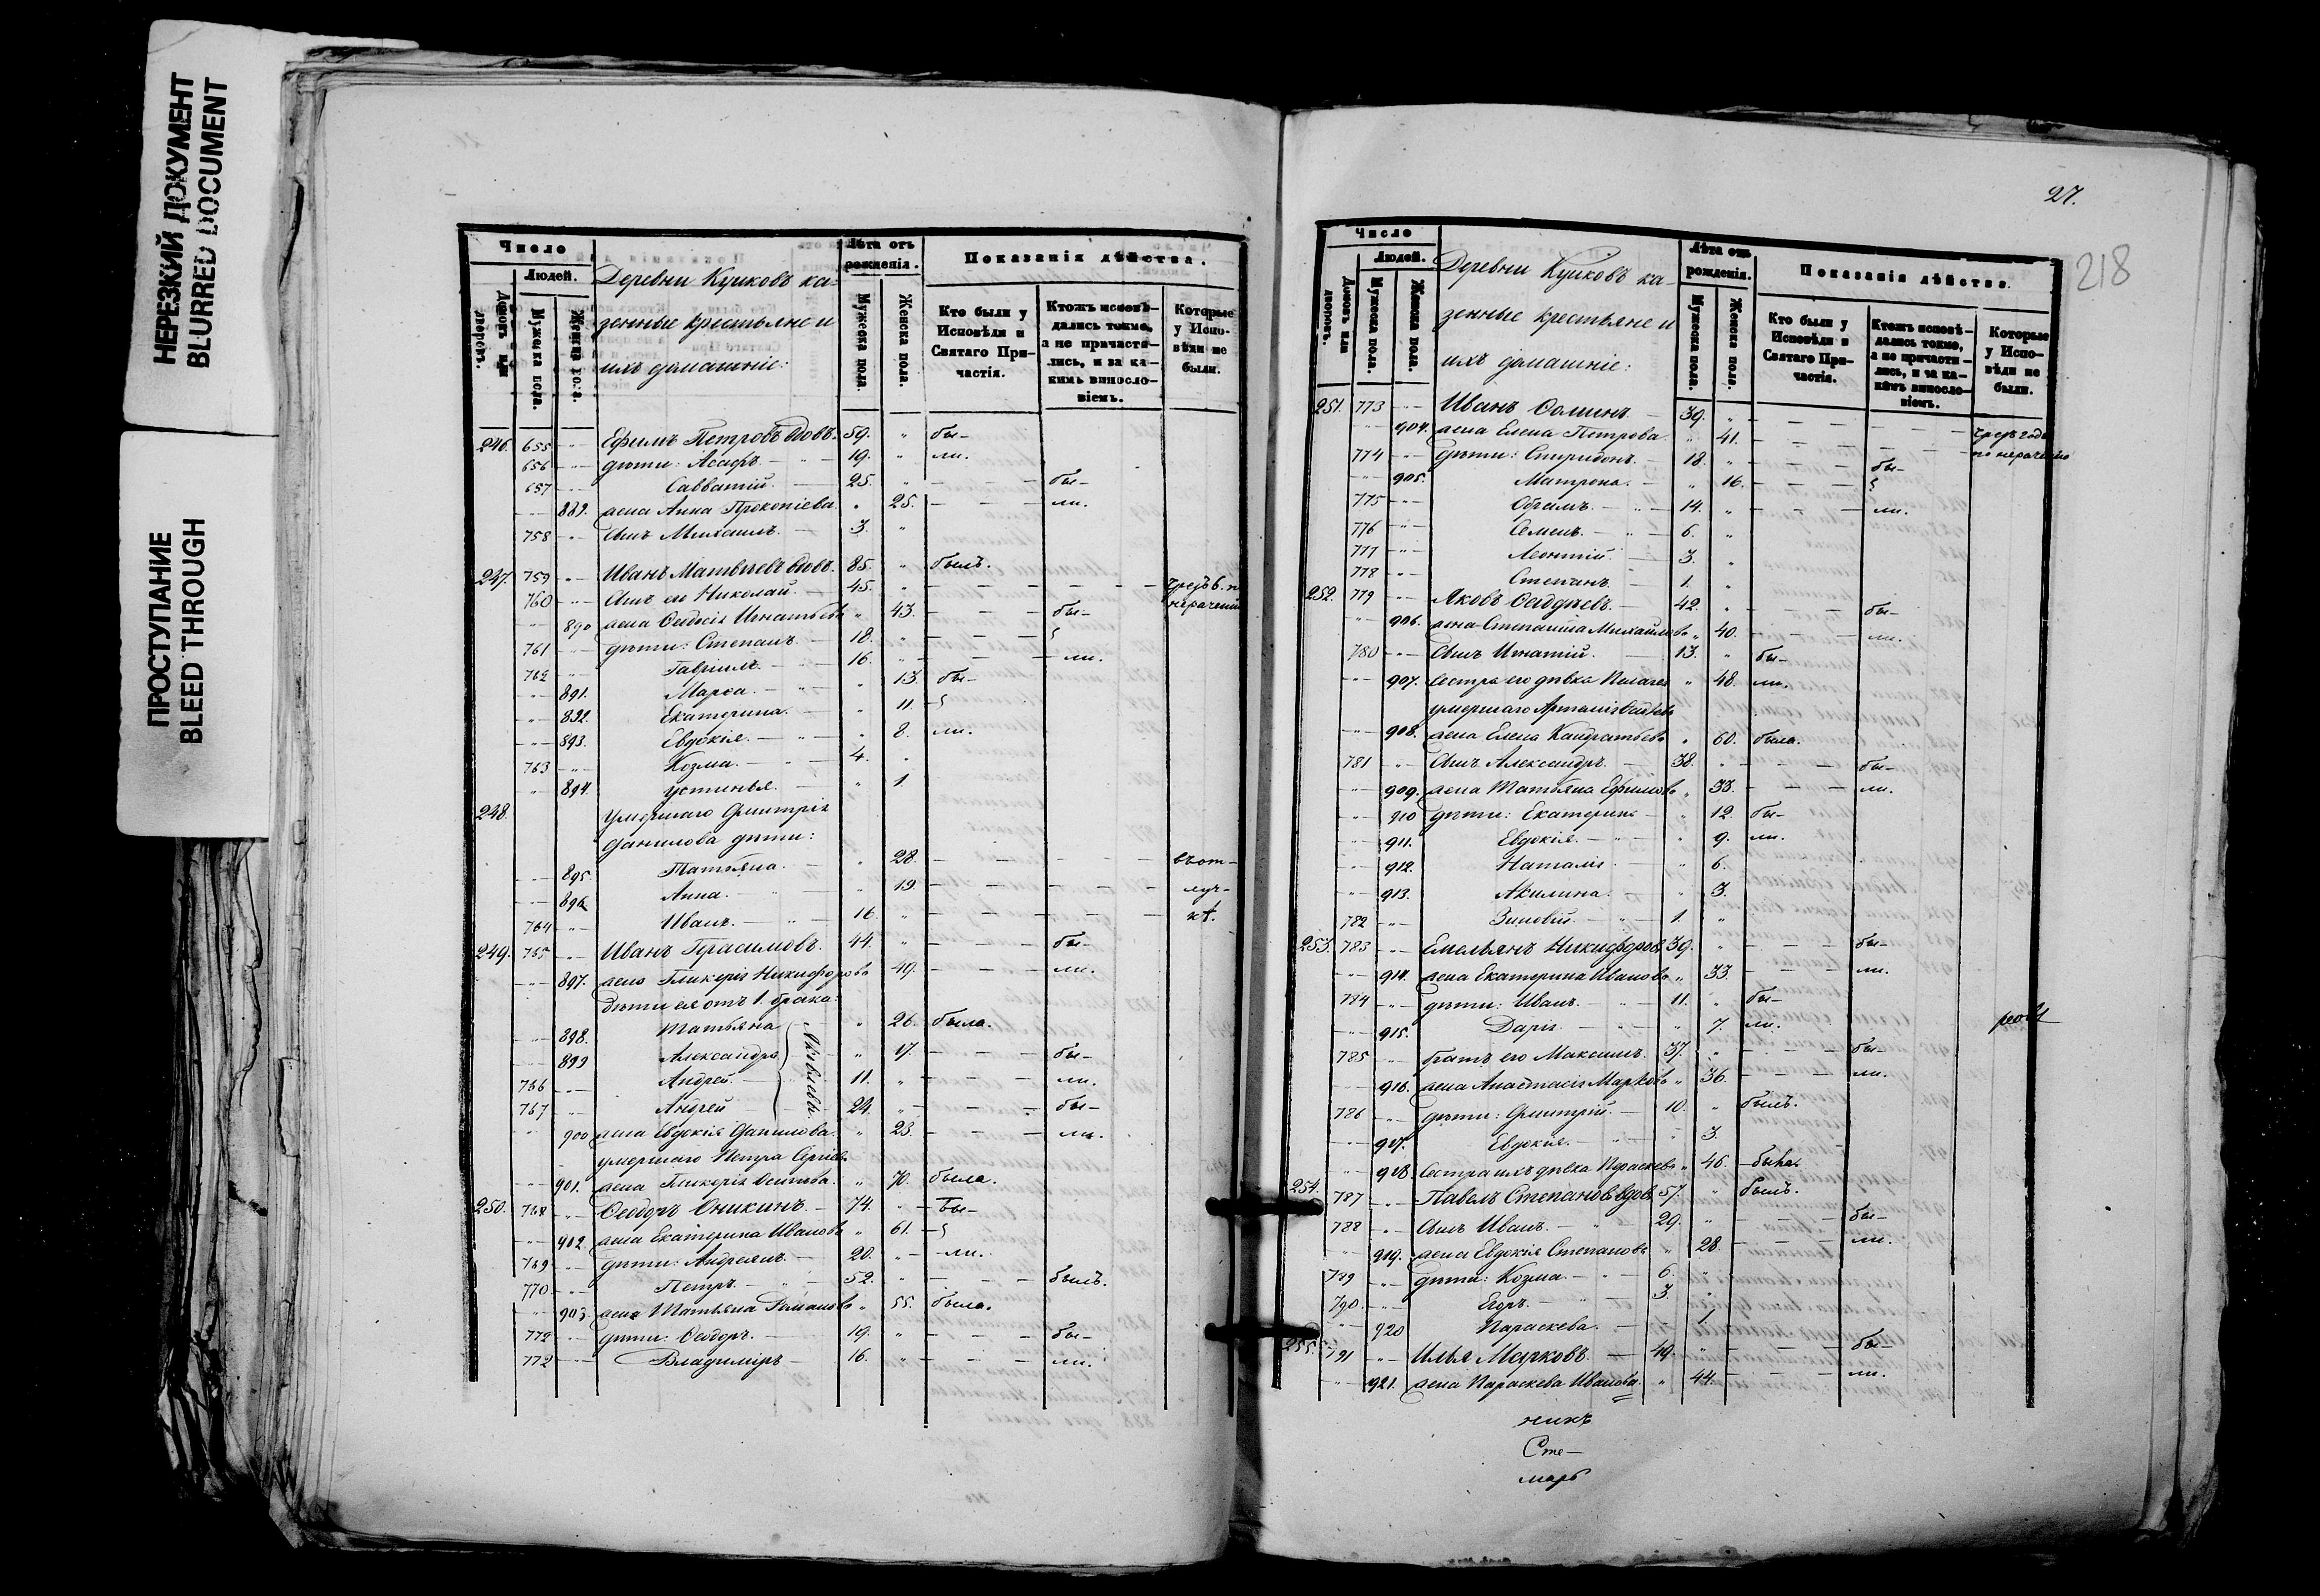 НЕРЕЗКИЙ ДОКУМЕНТ
BLURRED DOCUMENT
ПРОСТУПАНИЕ
BLEED THROUGH
Число
Людей.
Домовъ или дворовъ.
Мужеска пола.
Женска пола.
Деревни Кушковъ ка-
зенные крестьяне и
ихъ домашніе:
Лѣта отъ рожденія.
Мужеска пола.
Женска пола.
Показанія дѣйства.
Кто были у Исповѣди и Святаго При-частія.
Ктожъ исповѣ-дались токмо, а не причасти-лись, и за ка-кимъ виносло-віемъ.
Которые у Испо-вѣди не были.
246. 655 Ефимъ Петровъ вдовъ. 59. бы-
656 дѣти: Асафъ. 19. ли.
657 Савватій. 25. бы-
889. жена Анна Прокопіева. 25. ли.
758 сынъ Михаилъ. 3.
247. 759 Иванъ Матвѣевъ вдовъ. 85. былъ.
760 сынъ его Николай. 45. нерадению
890 жена Ѳеодосія Игнатьева 43. бы-
761 дѣти: Степанъ. 18.
762 Гавріилъ. 16. ли.
891. Марѳа. 13. бы-
892. Екатерина. 11.
893. Евдокія. 8. ли.
763 Козма. 4.
894. Устинья. 1.
248. умершаго Дмитрія
Данилова дѣти:
895. Татьяна. 28. въ от-
896. Анна. 19. луч-
764 Иванъ. 16. кѣ.
249. 765 Иванъ Герасимовъ. 44. бы-
897. жена Гликерія Никифорова 49. ли.
дѣти ея отъ 1. брака:
898. Татьяна 26. была.
899 Александра 17. бы-
766 Андрей. 11. ли.
767 Андрей 24. бы-
Яковлевы.
900 жена Евдокія Данилова. 23. ли.
умершаго Петра Сергіев.
901. жена Гликерія Осипова. 70. была.
250. 768 Ѳеодоръ Оникинъ. 74. бы-
902 жена Екатерина Иванова 61.
769 дѣти: Андреянъ. 20. ли.
770 Петръ. 52. былъ.
903. жена Татьяна Романова 55. была.
772 дѣти: Ѳеодоръ. 19. бы-
772 Владиміръ 16. ли.
27.
218
Число
Людей.
Домовъ или дворовъ.
Мужеска пола.
Женска пола.
Деревни Кушковъ ка-
зенные крестьяне и
ихъ домашніе:
Лѣта отъ рожденія.
Мужеска пола.
Женска пола.
Показанія дѣйства.
Кто были у Исповѣди и Святаго При-частія.
Ктожъ исповѣ-дались токмо, а не причасти-лись, и за ка-кимъ виносло-віемъ.
Которые у Испо-вѣди не были.
251. 773 Иванъ Ѳоминъ 39.
904. жена Елена Петрова 41.
774 дѣти: Спиридонъ. 18. бы-
905. Матрона. 16.
775 Ефимъ. 14. ли.
776 Семенъ. 6.
777 Леонтій. 3.
778 Степанъ. 1.
252. 779 Яковъ Ѳаддѣевъ. 42. бы-
906. жена Степанида Михайлова 40. ли.
780 сынъ Игнатій. 13. бы-
907. сестра его дѣвка Пелагея 48. ли.
умершаго Артемія Ѳадѣев
908. жена Елена Кандратьева 60. была.
781 сынъ Александръ. 38. бы-
909. жена Татьяна Ефимова 33. ли.
910 дѣти: Екатерина 12. бы-
911. Евдокія. 9. ли.
912. Наталія. 6.
913. Акилина. 3.
782 Зиновій. 1.
253. 783 Емельянъ Никифоровъ 39. бы-
914. жена Екатерина Иванова 33. ли.
784 дѣти: Иванъ. 11. бы-
915. Дарія. 7. ли.
785 братъ его Максимъ. 37. бы-
916. жена Анастасія Маркова 36. ли.
786 дѣти: Дмитрій. 10. былъ.
917. Евдокія. 3.
918 сестра ихъ дѣвка Параскева 46. была.
254. 787 Павелъ Степановъ вдов. 57. былъ.
788 сынъ Иванъ. 29. бы-
919. жена Евдокія Степанова 28. ли.
789 дѣти: Козма. 6.
790. Егоръ. 3.
920 Параскева. 1
255. 791 Илья Марковъ. 49. бы-
921. жена Параскева Иванова. 44. ли.
никъ
Сте-